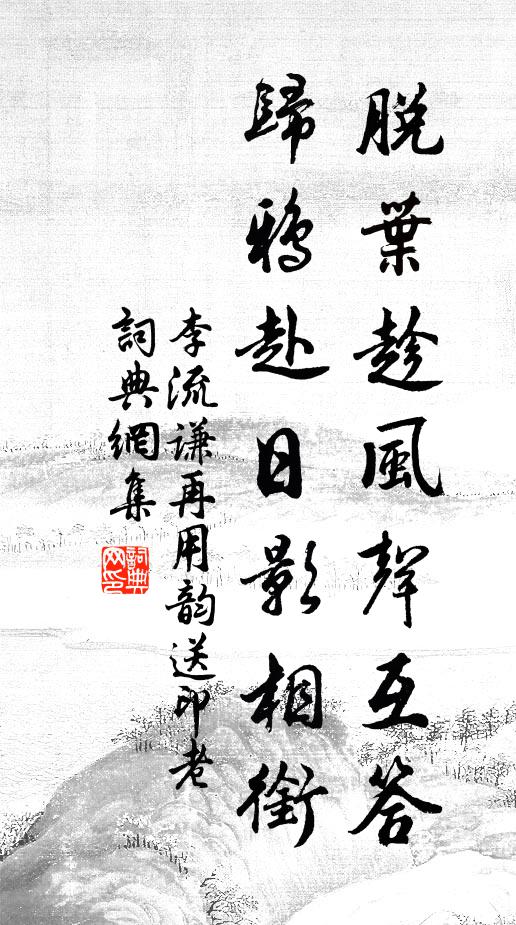 脫葉趁風聲互答
歸鴉赴日影相銜
李流謙再用韵送印老
詞典網集
詞典网印